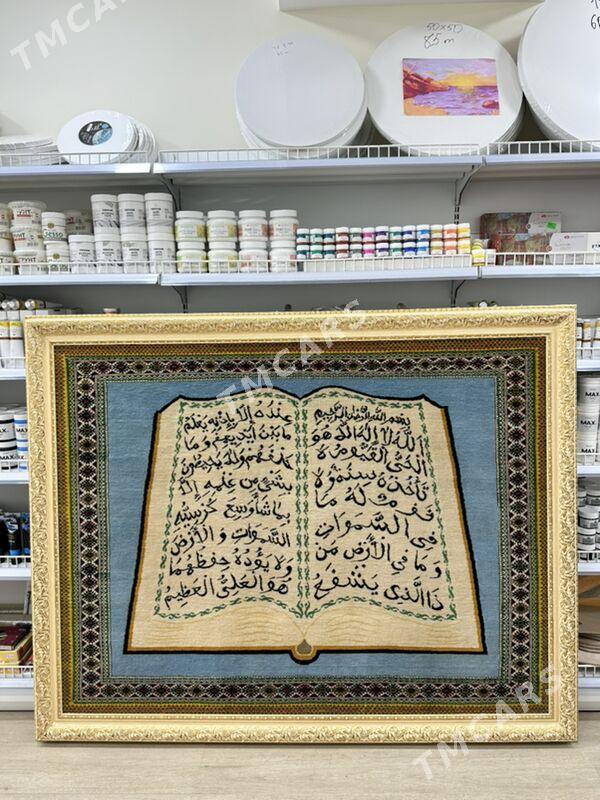 TMCARS
50×50
85m
بسم الله الرحمن الرحيم
الله لا إله إلا هو
الحي القيوم لا
تأخذه سنة ولا
نوم له ما
في السموات
و ما في الأرض من
ذا الذي يشفع
عنده إلا بإذنه يعلم
ما بين أيديهم وما
خلفهم ولا يحيطون
بشيء من علمه إلا
بما شاء وسع كرسيه
السموات و الأرض
ولا يؤده حفظهما
هو العلي العظيم
TMCARS
TMCARS
TMCARS
TMCARS